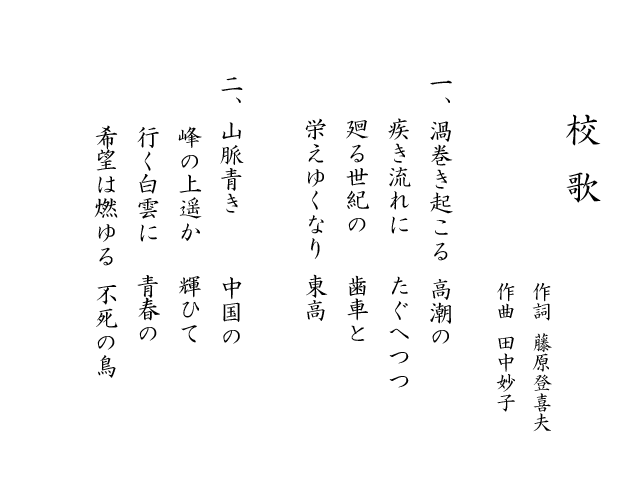 校歌
作詞 藤原登喜夫
作曲 田中妙子
一、渦巻き起こる 高潮の
疾き流れに たぐへつつ
廻る世紀の 歯車と
栄えゆくなり 東高
二、山脈青き 中国の
峰の上遥か 輝ひて
行く白雲に 青春の
希望は燃ゆる 不死の鳥